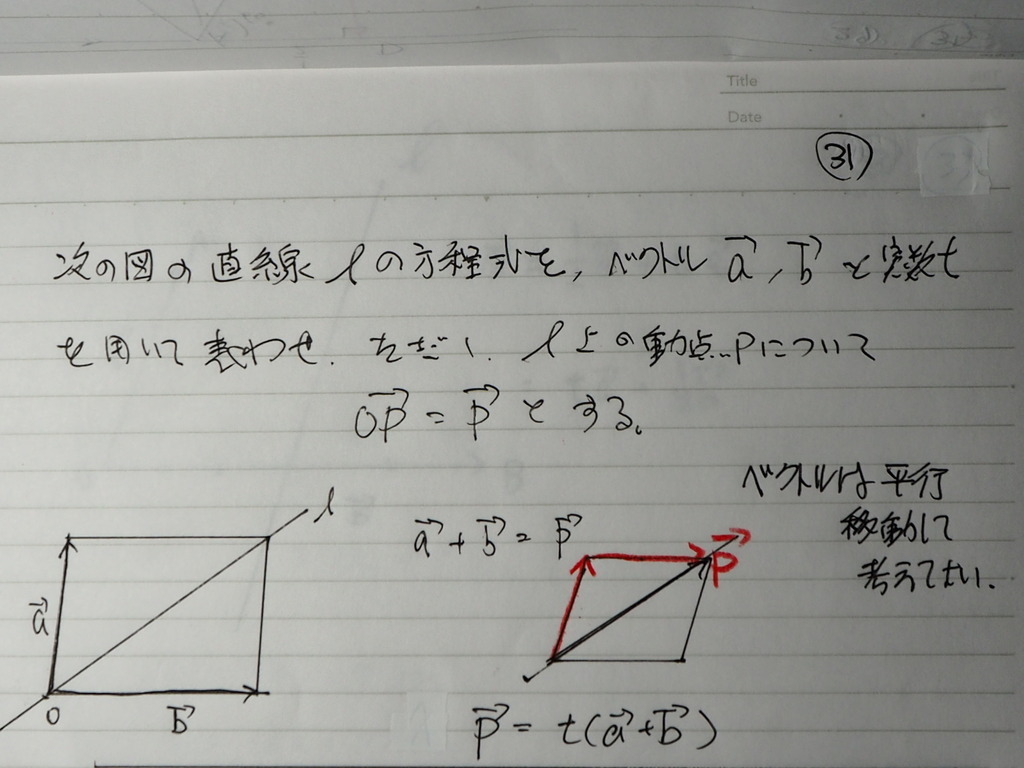 Title
Date
㉛
次の図の直線 l の方程式を, ベクトル a→, b→ と実数 t
を用いて表わせ. ただし, l 上の動点 P について
OP→ = p→ とする。
ベクトルは平行
移動して
考えてよい.
l
a→ + b→ = p→
p→
a→
O
b→
p→ = t(a→+b→)